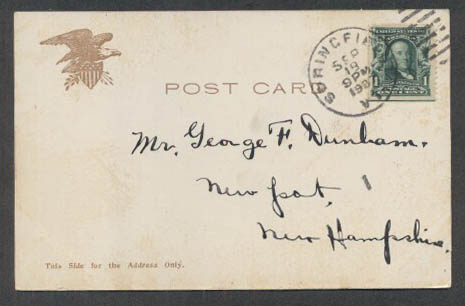 SPRINGFIELD
SEP
18
9 PM
190
POST CARD
1
Mr. George F. Dunham.
Newport,
New Hampshire.
This Side for the Address Only.